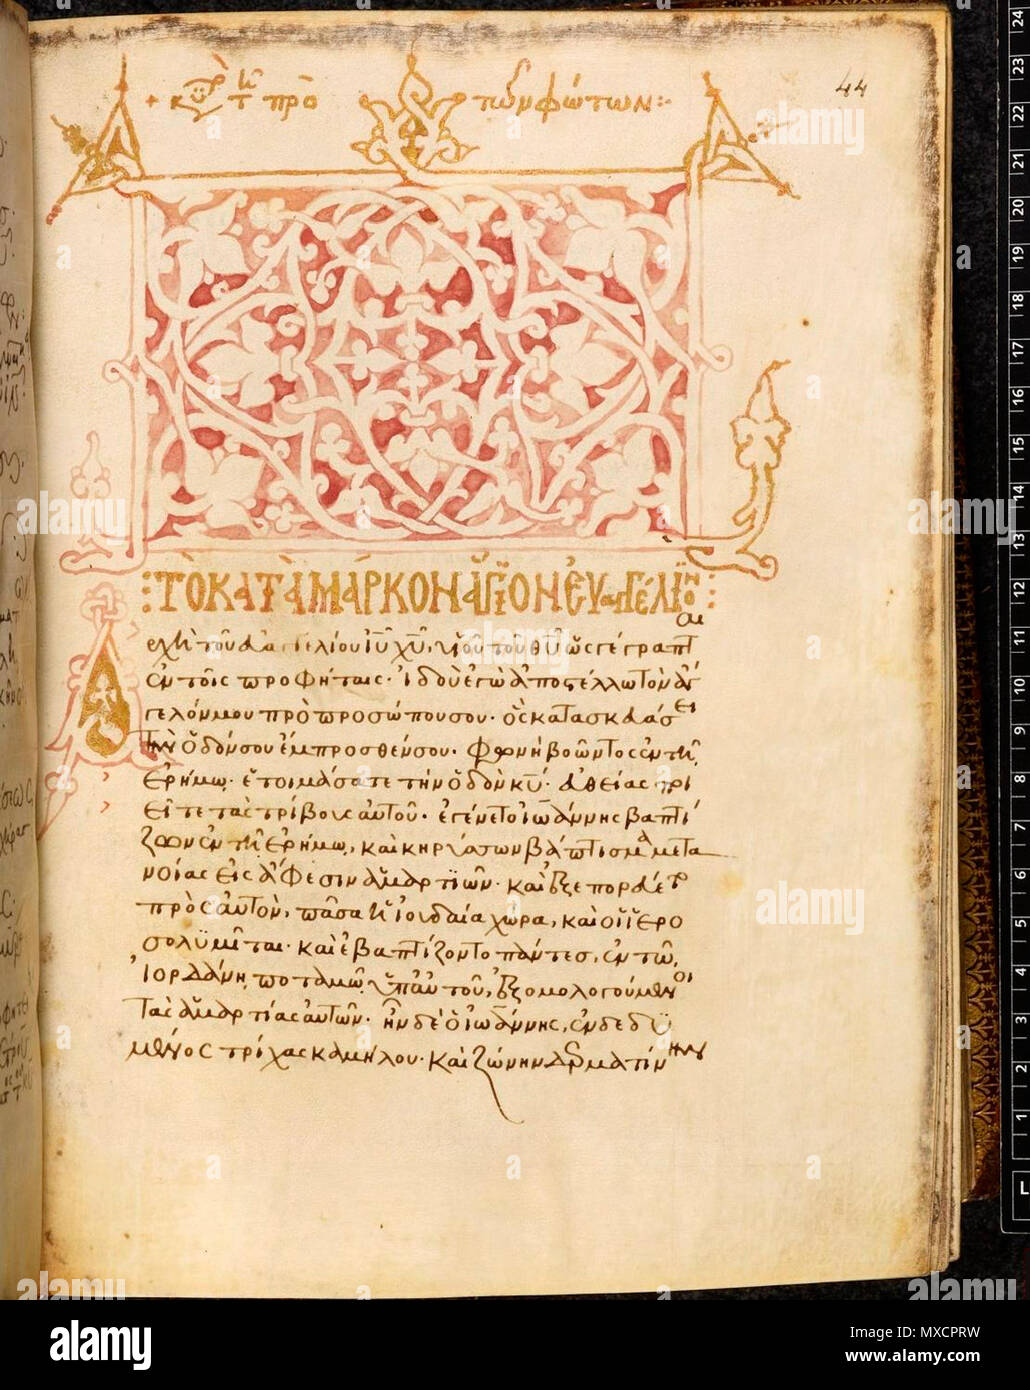 + κυρ τ πρὸ τῶν φώτων:
44
:ΤῸ ΚΑΤᾺ ΜΆΡΚΟΝ ἍΓΙΟΝ ΕΥΑΓΓΈΛΙΟΝ:
Αρχὴ τοῦ εὐαγγελίου ιῦ χῦ, υἱοῦ τοῦ θῦ ὡς γέγραπται
ἐν τοῖς προφήταις· ἰδοὺ ἐγὼ ἀποστέλλω τὸν ἄγ
γελόν μου πρὸ προσώπου σου· ὃς κατασκευάσει
τὴν ὁδόν σου ἔμπροσθέν σου· φωνὴ βοῶντος ἐν τῆ
ἐρήμω· ἑτοιμάσατε τὴν ὁδὸν κῦ· εὐθείας ποι
εῖτε τὰς τρίβους αὐτοῦ· ἐγένετο ἰωάννης βαπτί
ζων ἐν τῆ ἐρήμω, καὶ κηρύσσων βάπτισμα μετα
νοίας εἰς ἄφεσιν ἁμαρτιῶν· καὶ ἐξεπορεύετο
πρὸς αὐτὸν, πᾶσα ἡ ἰουδαία χώρα, καὶ οἱ ἱερο
σολυμῖται· καὶ ἐβαπτίζοντο πάντες, ἐν τῶ
ἰορδάνη ποταμῶ, ὑπ' αὐτοῦ, ἐξομολογούμενοι
τὰς ἁμαρτίας αὐτῶν· ἦν δὲ ὁ ἰωάννης, ἐνδεδυ
μένος τρίχας καμήλου· καὶ ζώνην δερματίνην
24
23
22
21
20
19
18
17
16
15
14
13
12
11
10
9
8
7
6
5
4
3
2
1
alamy
Image ID: MXCPRW
www.alamy.com